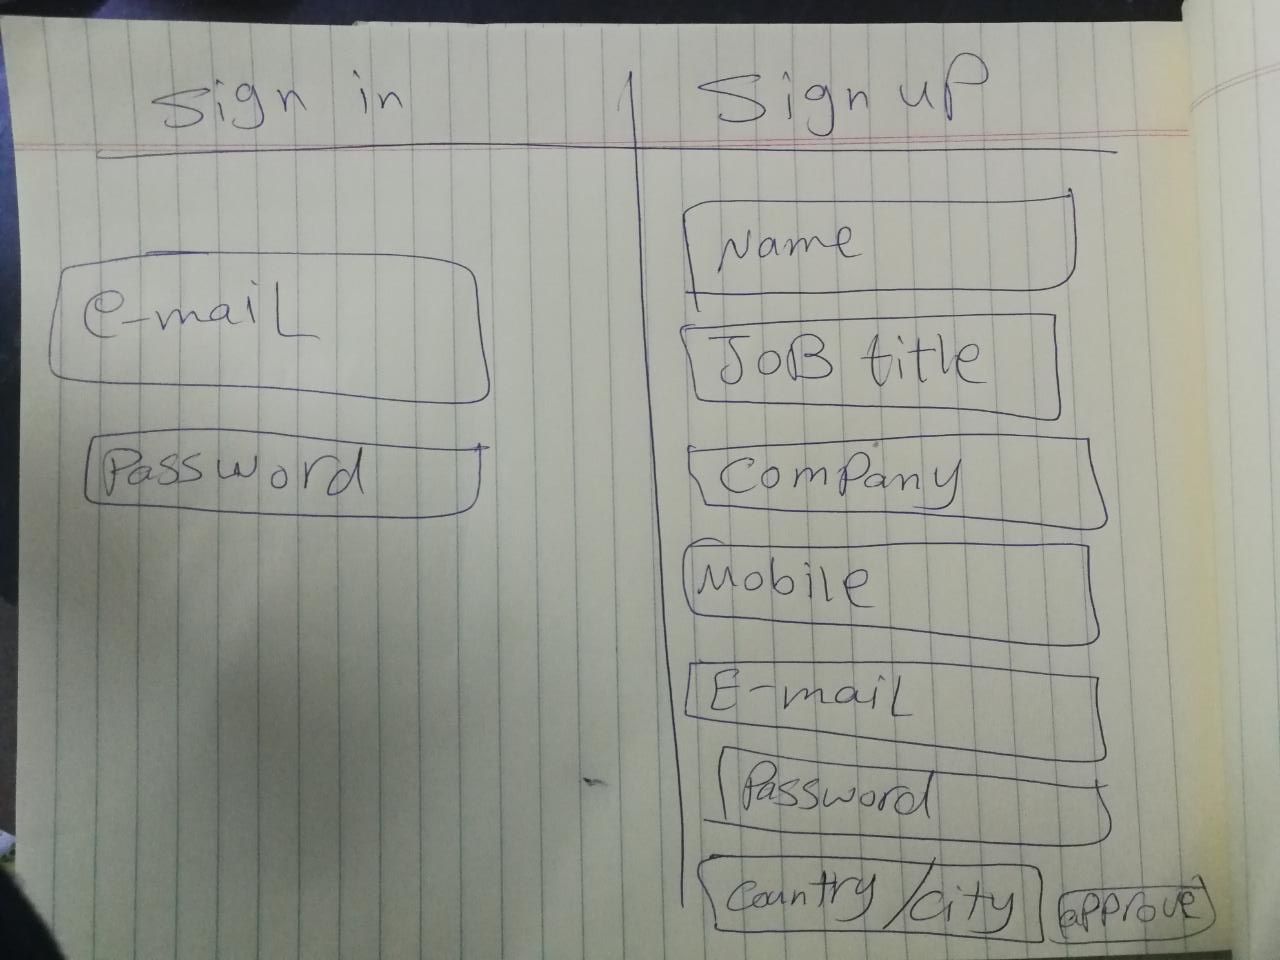 Sign in
Sign up
e-mail
Password
Name
JoB title
Company
Mobile
E-mail
Password
Country/city
approve